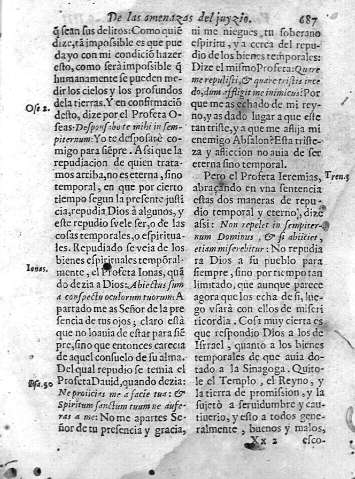 De las amenazas del juyzio. 687
q̃ sean sus delitos: Como quiẽ
dize, tã impossible es que pue-
da yo con mi condiciõ hazer
esto, como serà impossible q̃
humanamente se pueden me-
dir los cielos y los profundos
de la tierras. Y en confirmaciõ
Ose 2.
desto, dize por el Profeta O-
seas: Desponsabo te mihi in sem-
piternum: Yo te desposarè cõ-
migo para siẽpre. Assi que la
repudiacion de quien trata-
mos arriba, no es eterna, sino
temporal, en que por cierto
tiempo segun la presente justi
cia, repudia Dios à algunos, y
este repudio suele ser, o de las
cosas temporales, o espiritua-
les. Repudiado se veia de los
bienes espirituales temporal-
Ionas.
mente, el Profeta Ionas, quã
do dezia a Dios: Abiectus sum
a conspectu oculorum tuorum: A
partado me as Señor de la pre
sencia de tus ojos; claro està
que no lo auia de estar para siẽ
pre, sino que entonces carecia
de aquel consuelo de su alma.
Del qual repudio se temia el
Psa. 50
Profeta Dauid, quando dezia:
Ne proiicias me a facie tua: &
Spiritum sanctum tuum ne aufe-
ras a me: No me apartes Se-
ñor de tu presencia y gracia,
ni me niegues, tu soberano
espiritu, y a cerca del repu-
dio de los bienes temporales:
Dize el mismo Profeta: Quare
me repulisti, & quare tristis ince
do, dum affligit me inimicus? Por
que me as echado de mi rey-
no, y as dado lugar a que este
tan triste, y a que me aflija mi
enemigo Absalon? Esta triste-
za y aficcion no auia de ser
eterna sino temporal.
Pero el Profeta Ieremias,
Tren. 3
abraçando en vna sentencia
estas dos maneras de repu-
dio temporal y eterno, dize
assi: Non repelet in sempiter-
num Dominus, & si abiiciet,
etiam miserebitur: No repudia
ra Dios a su pueblo para
siempre, sino por tiempo tan
limitado, que aunque parece
agora que los echa de si, lue-
go vsarà con ellos de miseri
ricordia, Cosa muy cierta es
que respondio Dios a los de
Israel, quanto a los bienes
temporales de que auia do-
tado a la Sinagoga. Quito-
le el Templo, el Reyno, y
la tierra de promission, y la
sujetò a seruidumbre y cau-
tiuerio, y esto a todos gene-
ralmente, buenos y malos,
Xx 2 esco-